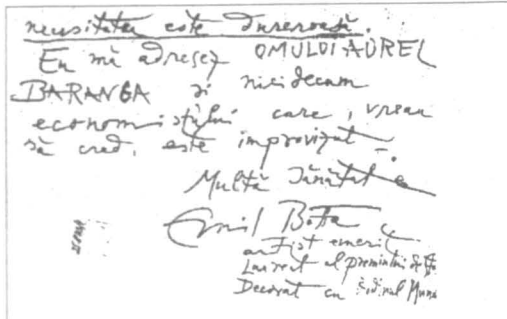 necesitatea este dureroasă.
Eu mă adresez OMULUI AUREL
BARANGA și nicidecum
economistului care, vreau
să cred, este improvizat –
Multă Sănătate
Emil Botta
artist emerit
Laureat al premiului de Stat
Decorat cu Ordinul Muncii